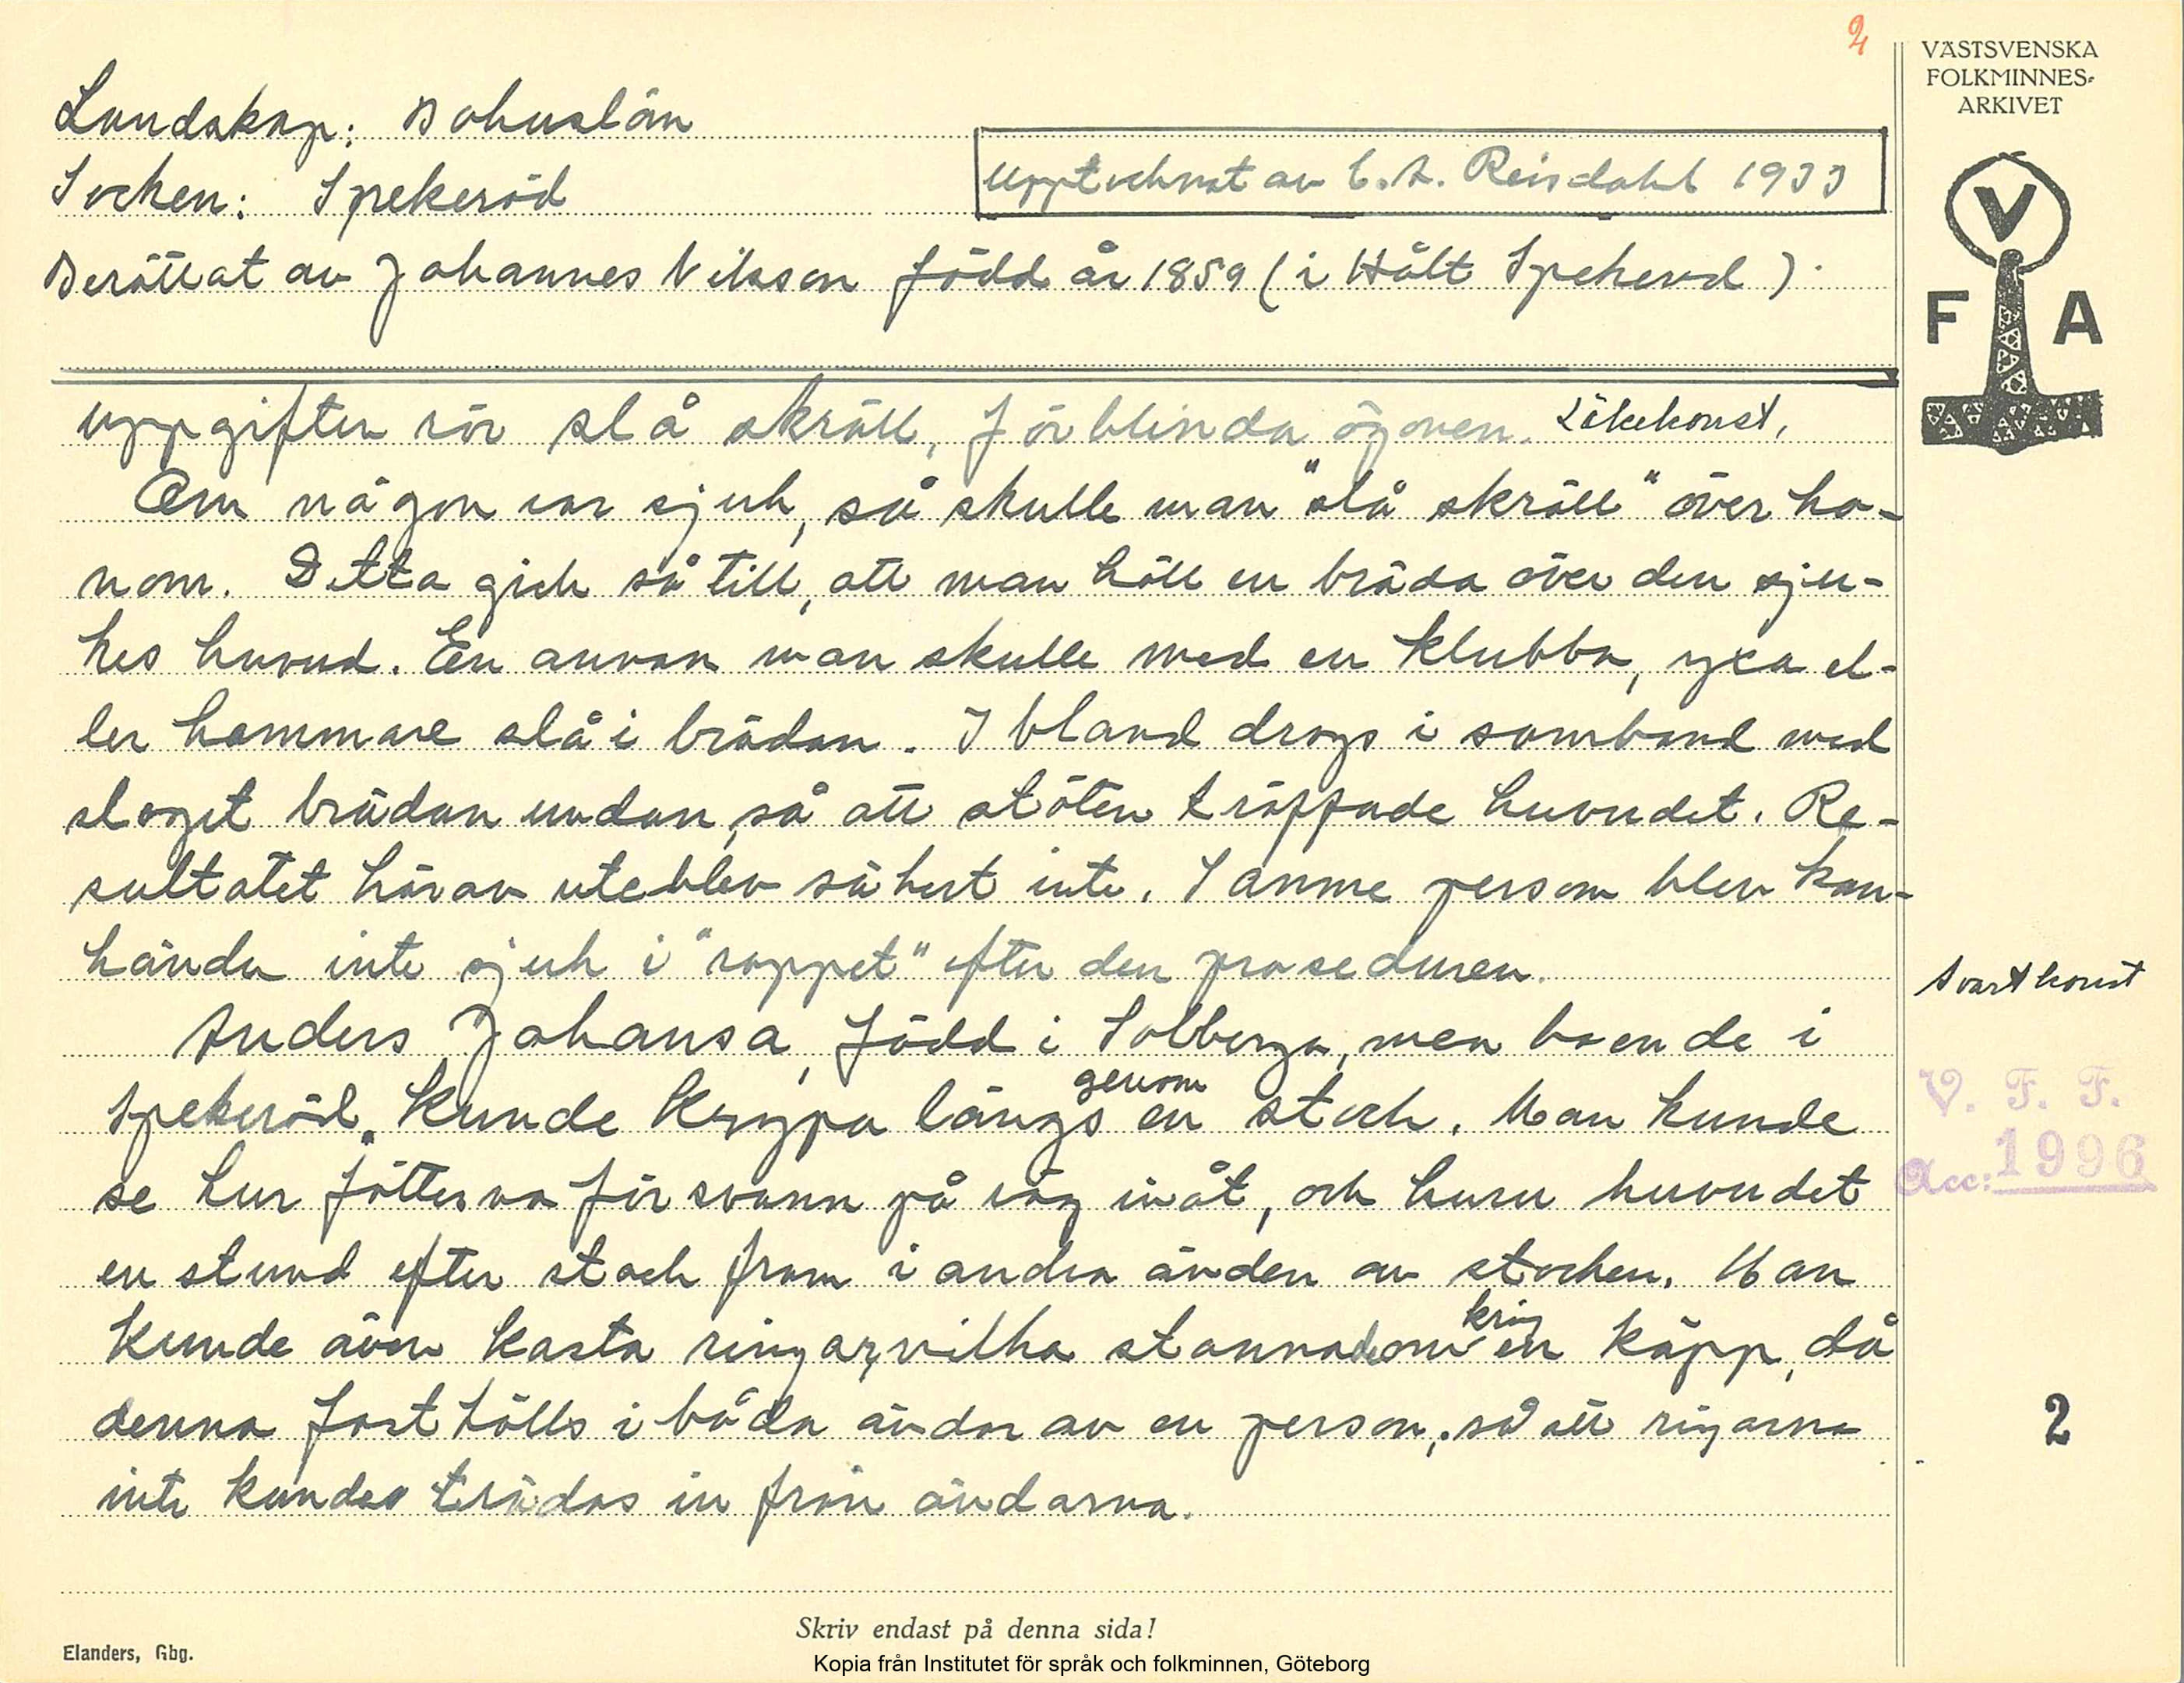 2
VÄSTSVENSKA
FOLKMINNES-
ARKIVET
V
F A
Landskap: Bohuslän
Socken: Spekeröd
Upptecknat av C. A. Reisdahl 1933
Berättat av Johannes Nilsson född år 1859 (i Hält Spekeröd).
Uppgiften rör slå skräll, förblinda ögonen. Läkekonst.
Om någon var sjuk, så skulle man "slå skräll" över ho-
nom. Detta gick så till, att man höll en bräda över den sju-
kes huvud. En annan man skulle med en klubba, yxa el-
ler hammare slå i brädan. Ibland drogs i samband med
slaget brädan undan, så att stöten träffade huvudet. Re-
sultatet härav uteblev säkert inte. Samme person blev kan-
hända inte sjuk i "rappet" efter den proseduren.
Svartkonst
Anders Johansa, född i Solberga, men boende i
Spekeröd. Kunde krypa längs genom en stock. Man kunde
V. F. F.
Acc: 1996
se hur fötterna försvann på väg inåt, och huru huvudet
en stund efter stack fram i andra änden av stocken. Man
kunde även kasta ringar, vilka stannade om kring en käpp, då
denna fasthölls i båda ändar av en person, så att ringarna
2
inte kundes trädas in från ändarna.
Skriv endast på denna sida!
Elanders, Gbg.
Kopia från Institutet för språk och folkminnen, Göteborg